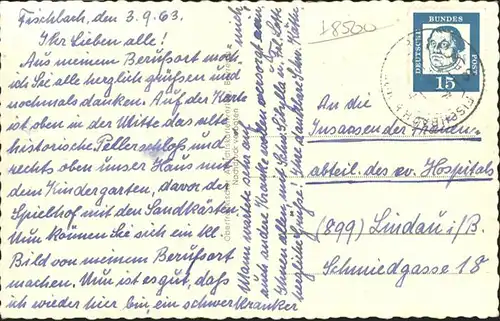 Fischbach, den 3.9.63.
Ihr Lieben alle!
Aus meinem Berufsort möch
ich Sie alle herzlich grüßen und
nochmals danken. Auf der Karte
ist oben in der Mitte das alte
historische Pellerschloß und
rechts oben unser Haus mit
dem Kindergarten, davor der
Spielhof mit den Sandkästen.
Nun können Sie sich ein kl.
Bild von meinem Berufsort
machen. Nun ist es gut, daß
ich wieder hier bin, ein schwerkranker
Mann wartete sehr auf mich
auch andere Kranke wollen versorgt sein.
Ihnen allen, mit Schw. Sigella u. Frl. Lotte
herzliche Grüße! Ihre dankbare Schw. Käthe
Nachdruck verboten
18500
DEUTSCHE BUNDESPOST
15
FISCHBACH
An die
Insassen der Männer-
abteil. des ev. Hospitals
(899) Lindau i/B.
Schmiedgasse 18